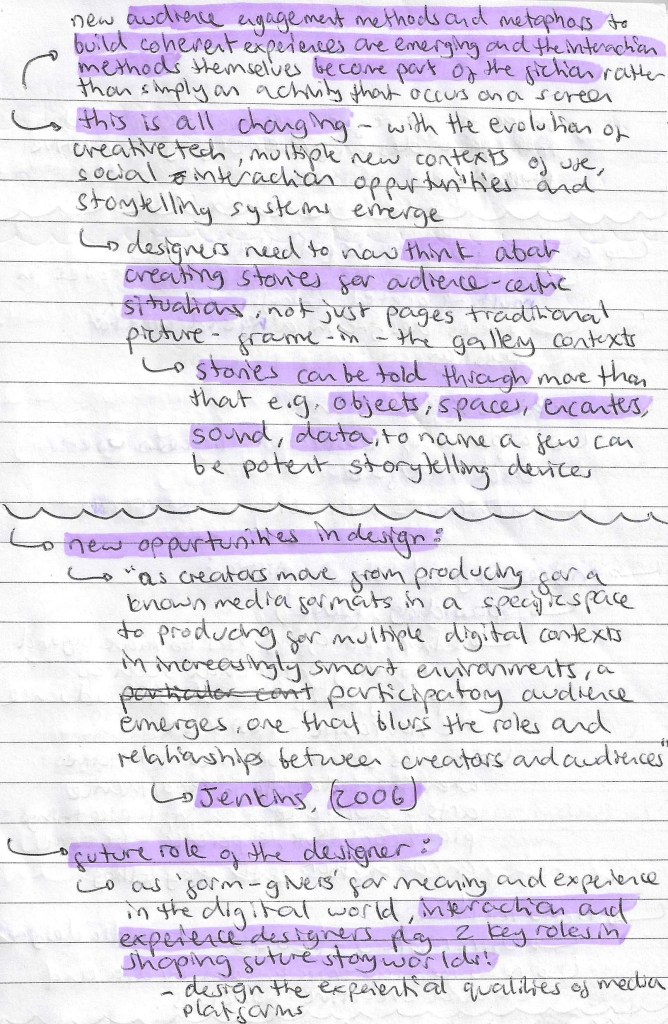 new audience engagement methods and metaphors to
build coherent experiences are emerging and the interaction
methods themselves become part of the fiction rather
than simply an activity that occurs on a screen
this is all changing - with the evolution of
creative tech, multiple new contexts of use,
social interaction oppurtunities and
storytelling systems emerge
designers need to now think about
creating stories for audience-centic
situations, not just pages traditional
picture-frame-in-the gallery contexts
stories can be told through more than
that e.g. objects, spaces, encounters,
sound, data, to name a few can
be potent storytelling devices
new oppurtunities in design:
"as creators move from producing for a
known media formats in a specific space
to producing for multiple digital contexts
in increasingly smart environments, a
particular cont participatory audience
emerges, one that blurs the roles and
relationships between creators and audiences"
Jenkins, (2006)
future role of the designer:
as 'form-givers' for meaning and experience
in the digital world, interaction and
experience designers play 2 key roles in
shaping future storyworlds!
- design the experiential qualities of media
platforms